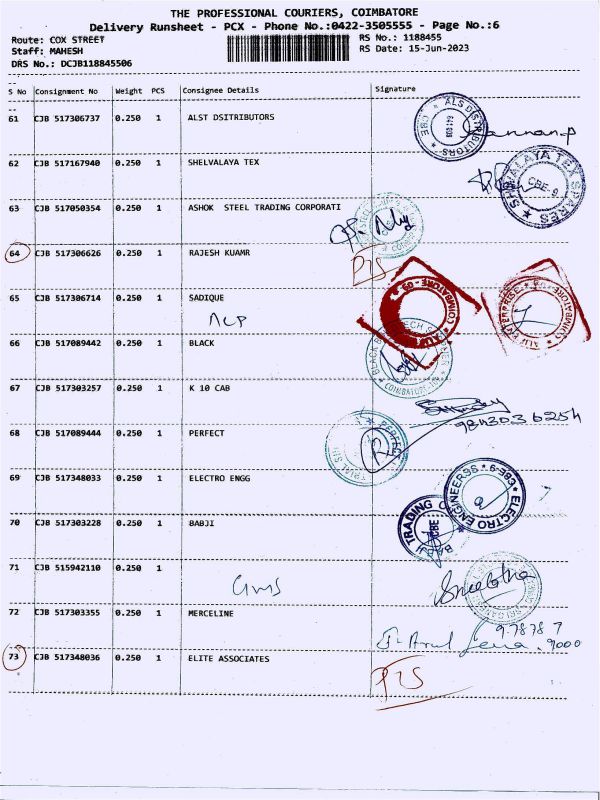 THE PROFESSIONAL COURIERS, COIMBATORE
Delivery Runsheet - PCX - Phone No.:0422-3505555 - Page No.:6
Route: COX STREET RS No.: 1188455
Staff: MAHESH RS Date: 15-Jun-2023
DRS No.: DCJB118845506
S No Consignment No Weight PCS Consignee Details Signature
61 CJB 517306737 0.250 1 ALST DSITRIBUTORS
ALS DISTRIBUTORS CBE
62 CJB 517167940 0.250 1 SHELVALAYA TEX
SHELVALAYA TEX SPARES CBE-9
63 CJB 517050354 0.250 1 ASHOK STEEL TRADING CORPORATI
64 CJB 517306626 0.250 1 RAJESH KUAMR
65 CJB 517306714 0.250 1 SADIQUE
66 CJB 517089442 0.250 1 BLACK
67 CJB 517303257 0.250 1 K 10 CAB
9843036254
68 CJB 517089444 0.250 1 PERFECT
PERFECT
69 CJB 517348033 0.250 1 ELECTRO ENGG
ELECTRO ENGINEERS
70 CJB 517303228 0.250 1 BABJI
TRADING CBE
71 CJB 515942110 0.250 1
72 CJB 517303355 0.250 1 MERCELINE
97878 7
9000
73 CJB 517348036 0.250 1 ELITE ASSOCIATES